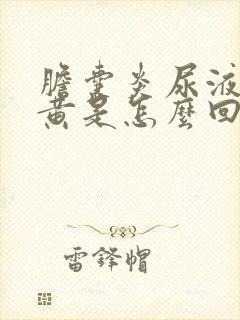 膽囊炎尿液
黃是怎麼回
雷鋒帽